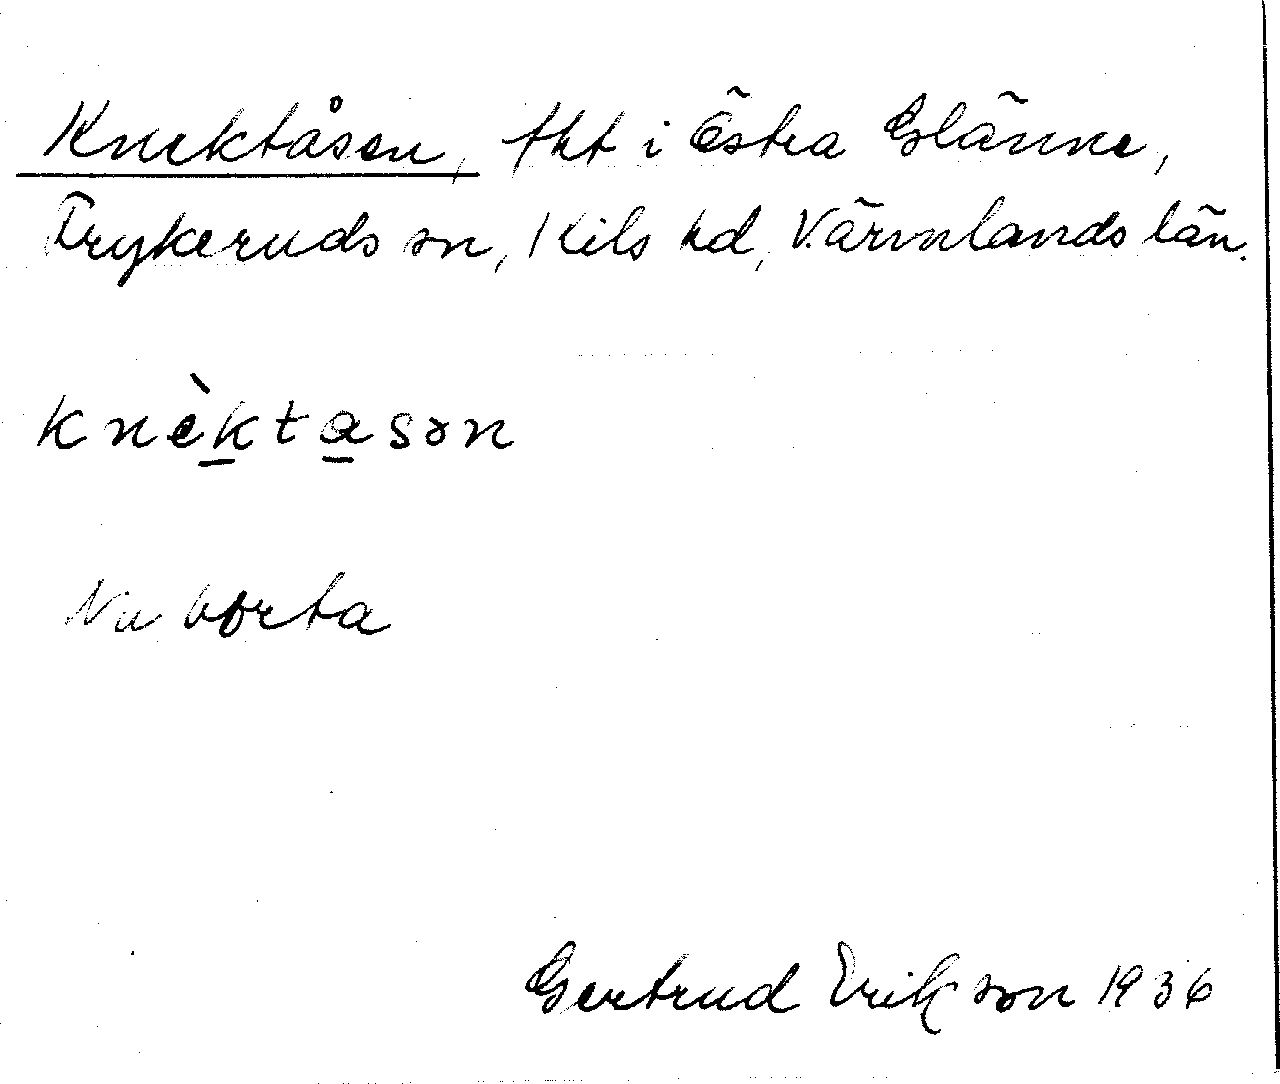 Knektåsen, tht i Östra Glänne,
Frykeruds sn, Kils hd, Värmlands län.
knèktasən
Nu borta
Gertrud Erikson 1936